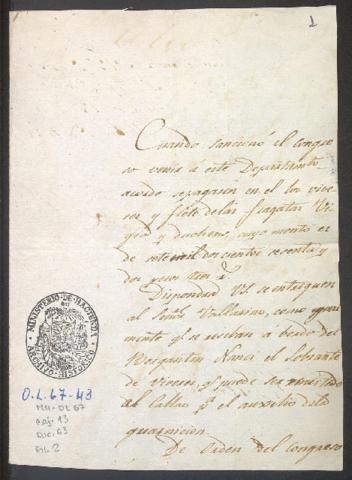 1
Cuando sancionó el congre
so venia á este Departamto
acordo se pagasen en el los vive
res y flete de las fragatas Vi
gia y duchesse, cuyo monto es
de
dos pesos
Dispondrá VS se entreguen
al Señor Vallarino, como igual
mente qe se reciban á bordo del
Bergantin Nanci el sobrante
de viveres qe puede ser remitido
al Callao pa el auxilio de la
guarnicion.
De orden del congreso
MINISTERIO-DE-HACIENDA
ARCHIVO-HISTORICO
O.L. 67-43
MH-OL 67
caj. 13
Doc. 63
fol. 2